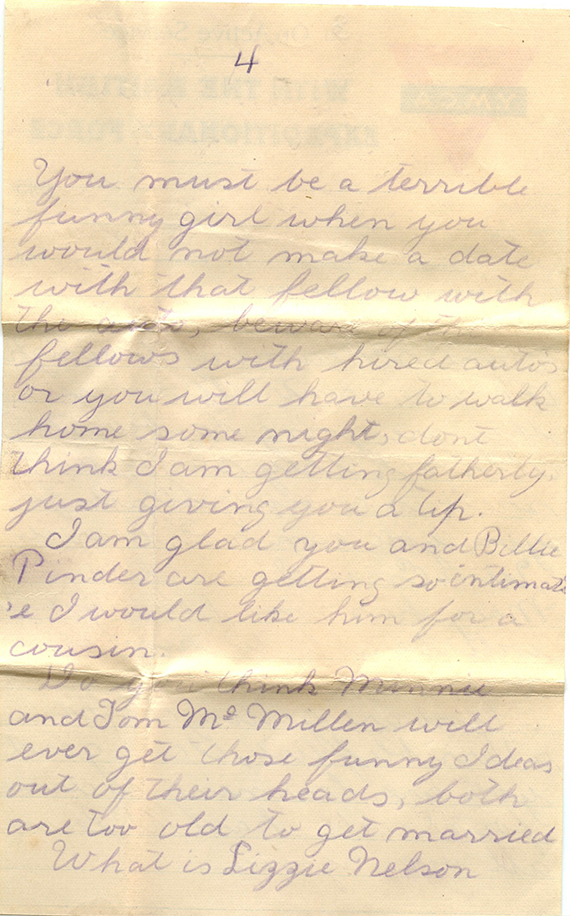 4
You must be a terrible
funny girl when you
would not make a date
with that fellow with
the auto, beware of
fellows with hired autos
or you will have to walk
home some night, dont
think I am getting fatherly.
just giving you a tip.
I am glad you and Billie
Pinder are getting so intimat
e I would like him for a
cousin.
Do you think Minnie
and Tom Mc Millen will
ever get those funny Ideas
out of their heads, both
are too old to get married
What is Lizzie Nelson